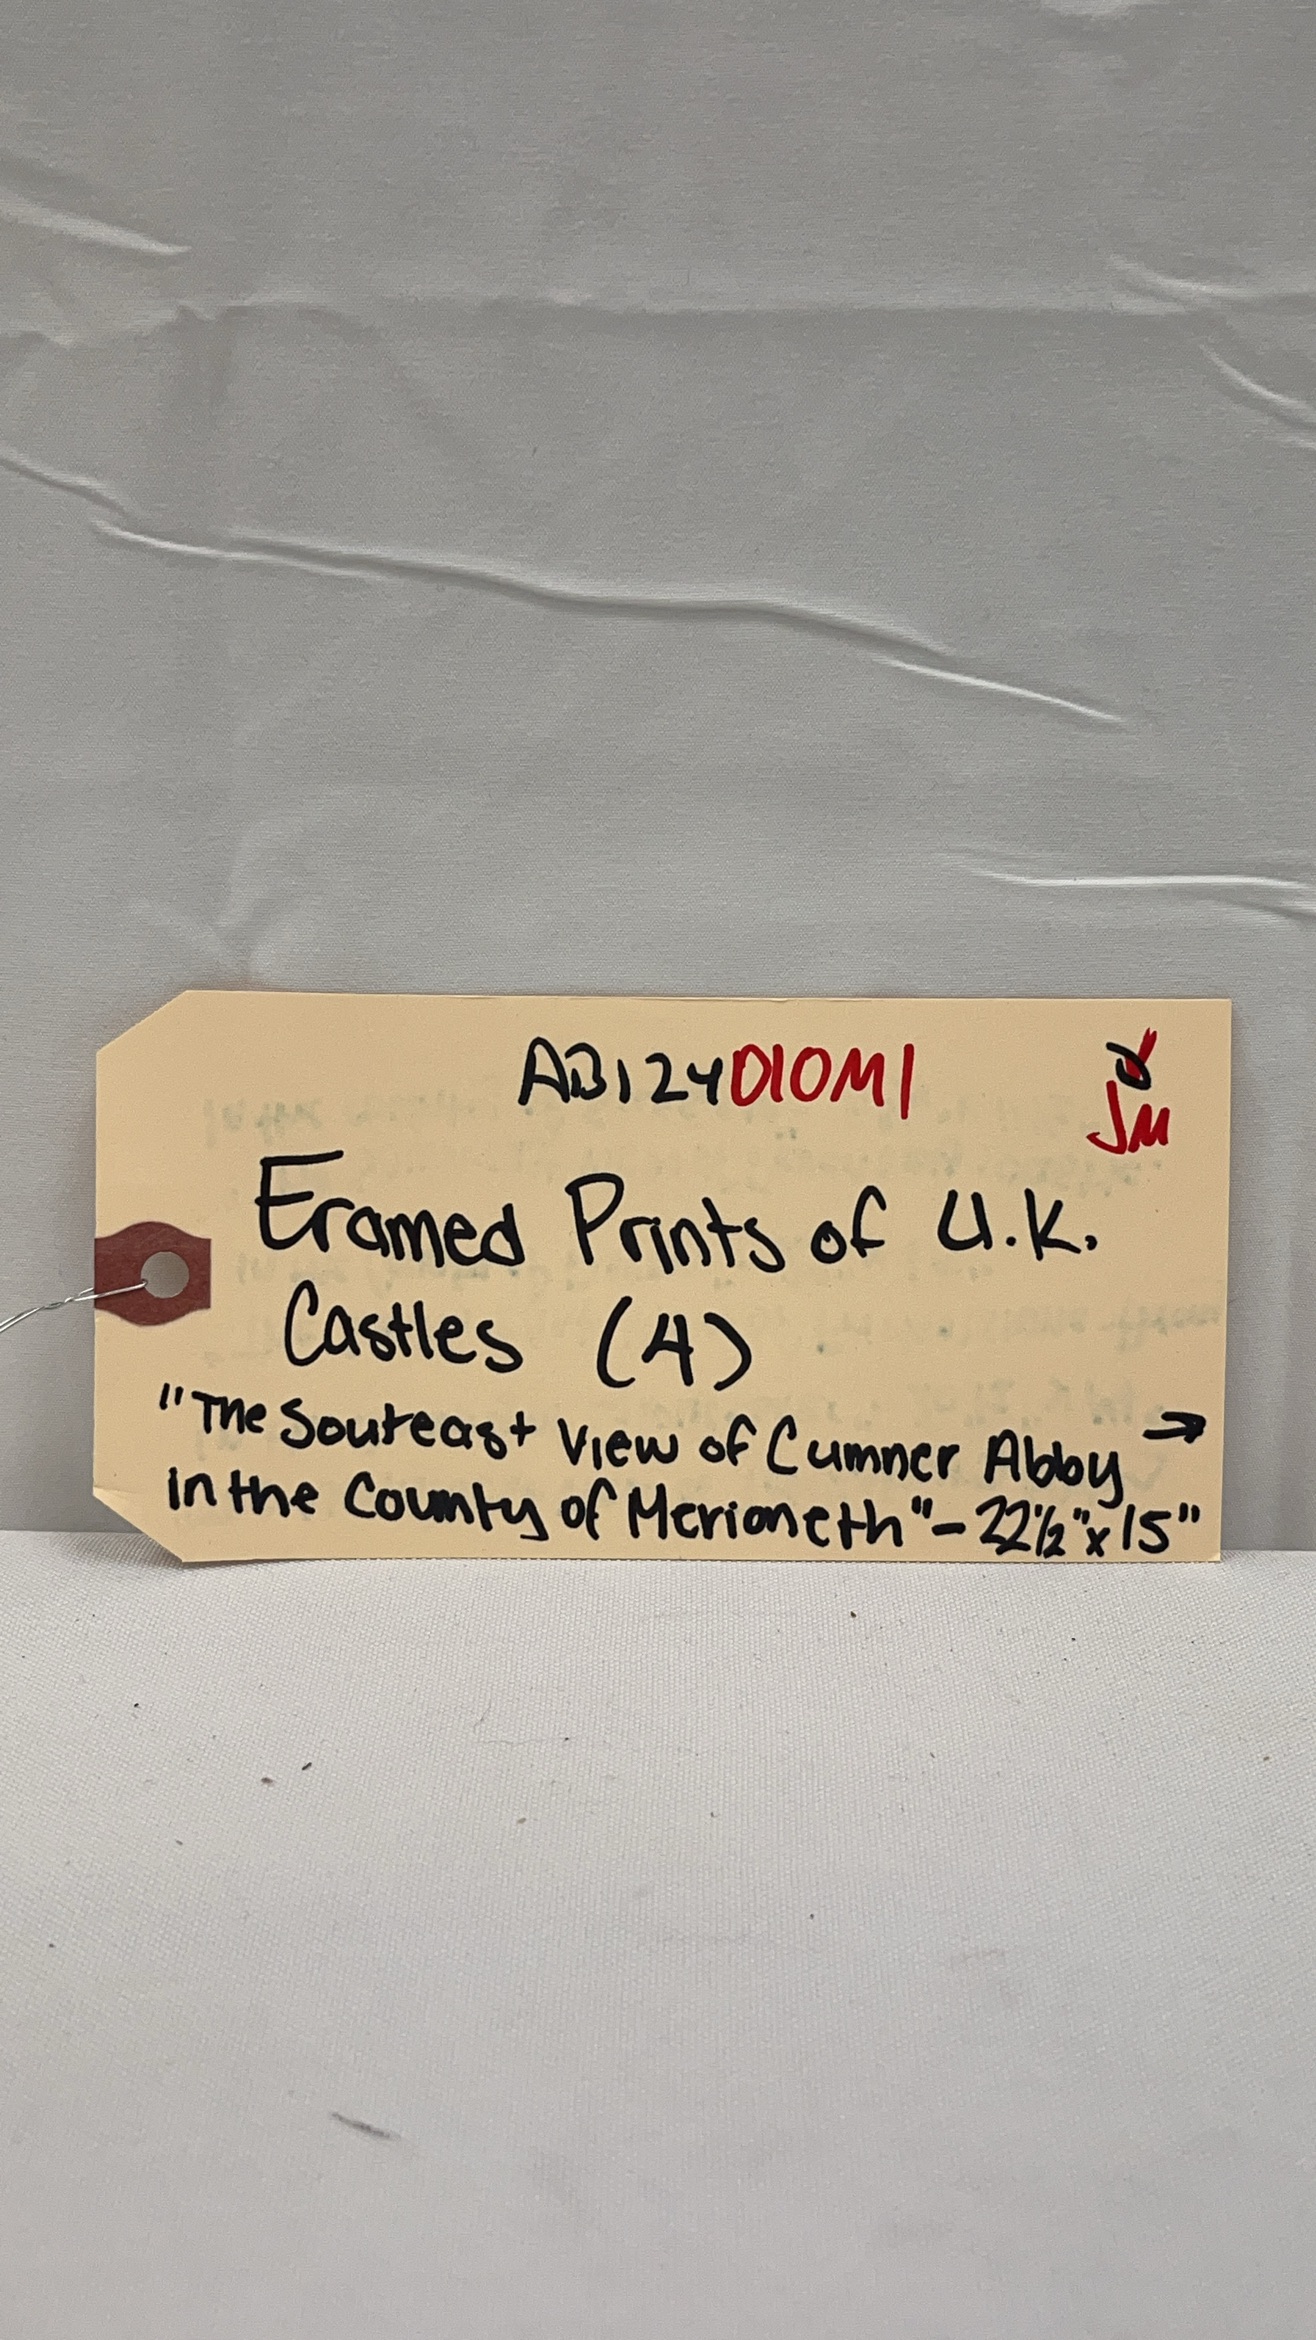 AB124D10M1
JM
Eramed Prints of U.K.
Castles (4)
"The Souteast View of Cumner Abby →
in the County of Merioneth" - 22 1/2" x 15"